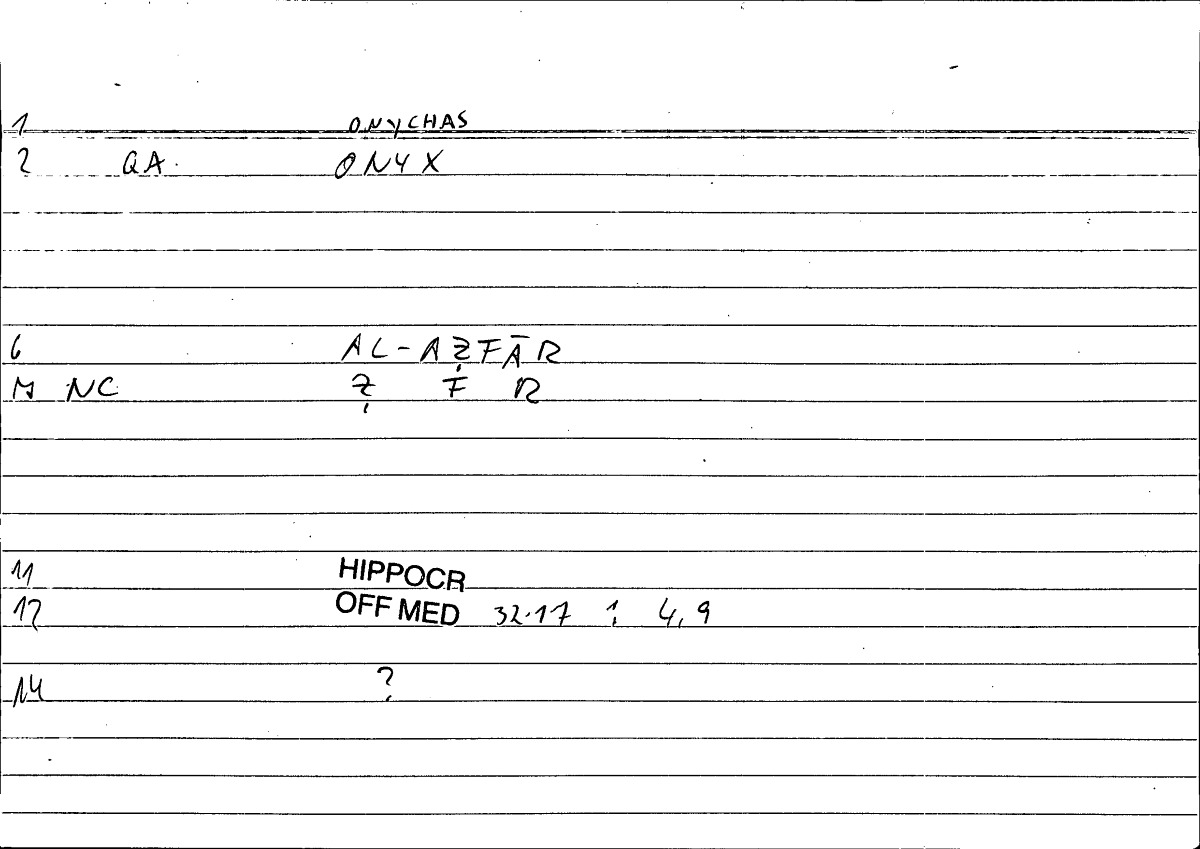 1 ONYCHAS
2 QA. ONYX
6 AL-AẒFĀR
NC Ẓ F R
11 HIPPOCR
12 OFF MED 32.17 ; 4,9
14 ?